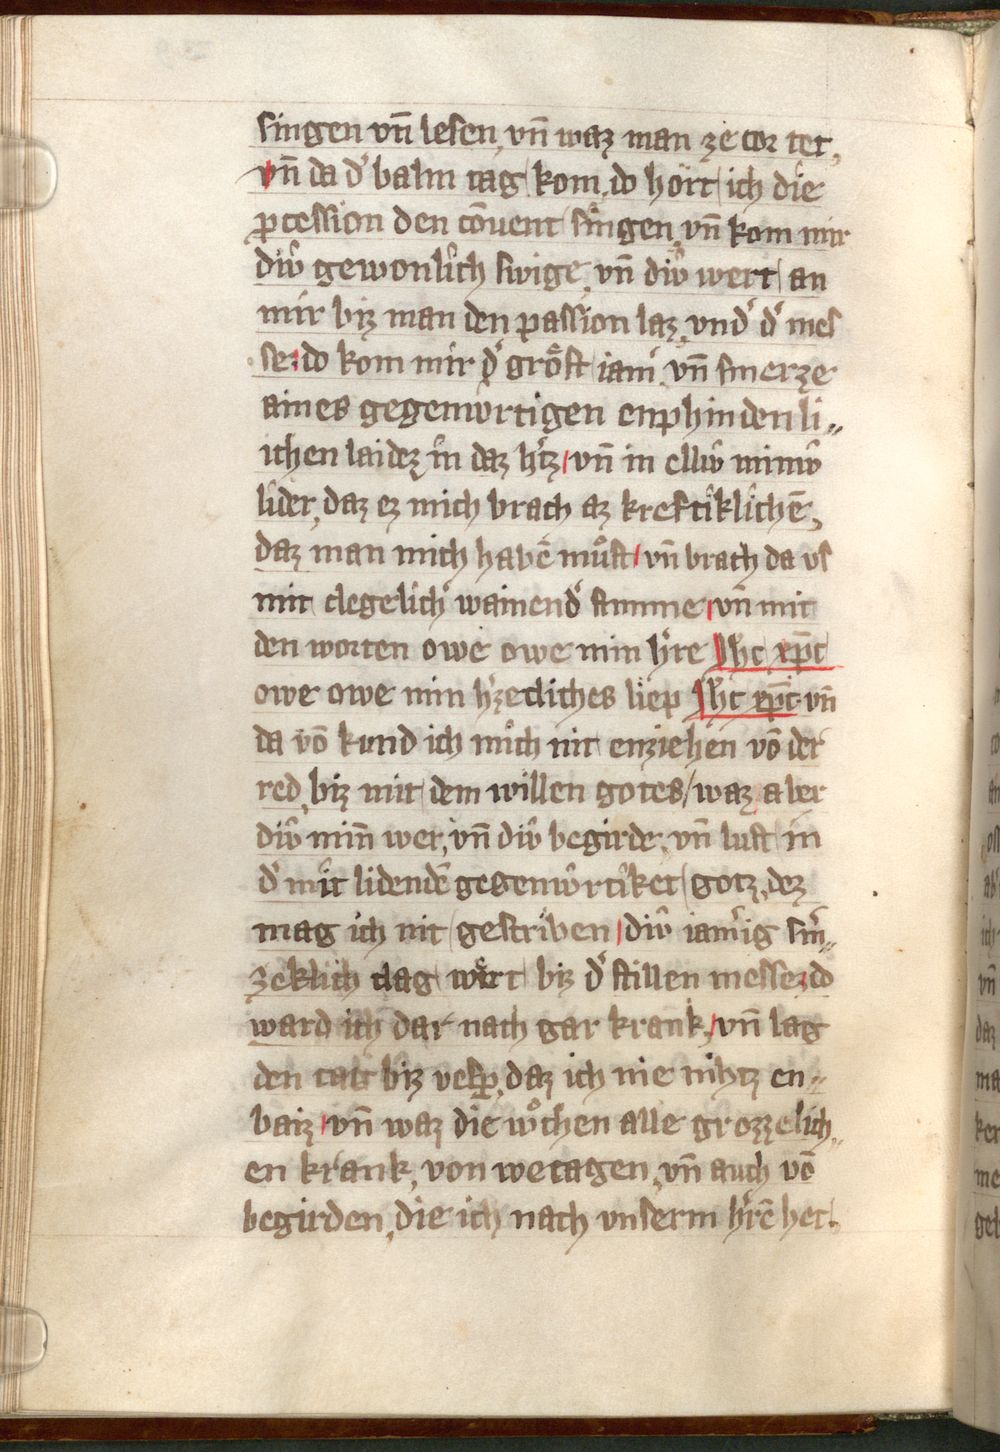 singen vn̄ lesen, vn̄ waz man ze cor tet,
vn̄ da d͛ balm tag kom, do hört ich die
pcession den cōuent singen, vn̄ kom mir
diu̍ gewonlich swige, vn̄ diu̍ wert an
mir biz man den passion laz, vnd͛ d͛ mes
se, do kom mir d͛ gröst iam͛, vn̄ smerze
aines gegenwrtigen enphindenli〃
ichen laidez in daz h͛tz, vn̄ in elliu̍ miniu̍
lider, daz ez mich brach az kreftiklichē,
daz man mich habē můst, vn̄ brach da vs
mit clegelich͛ wainend͛ stimme, vn̄ mit
den worten owe owe min h͛re Jhc xp̄c
owe owe min h͛zecliches liep Jhc xp̄c vn̄
da vō kund ich mich nit enziehen vō der
red, biz mit dem willen gotes, waz aber
diu̍ min̄ wer, vn̄ diu̍ begirde, vn̄ lust in
d͛ mit lidendē gegenwrtiket gotz, dez
mag ich nit gescriben, diu̍ iam͛ig sm͛〃
zeklich clag wert biz d͛ stillen messe, do
ward ich dar nach gar krank, vn̄ lag
den tag biz vesp, daz ich nie nihtz en〃
baiz, vn̄ waz die wochen alle grozzelich〃
en krank, von wetagen, vn̄ auch vō
begirden, die ich nach vnserm h͛rē het.